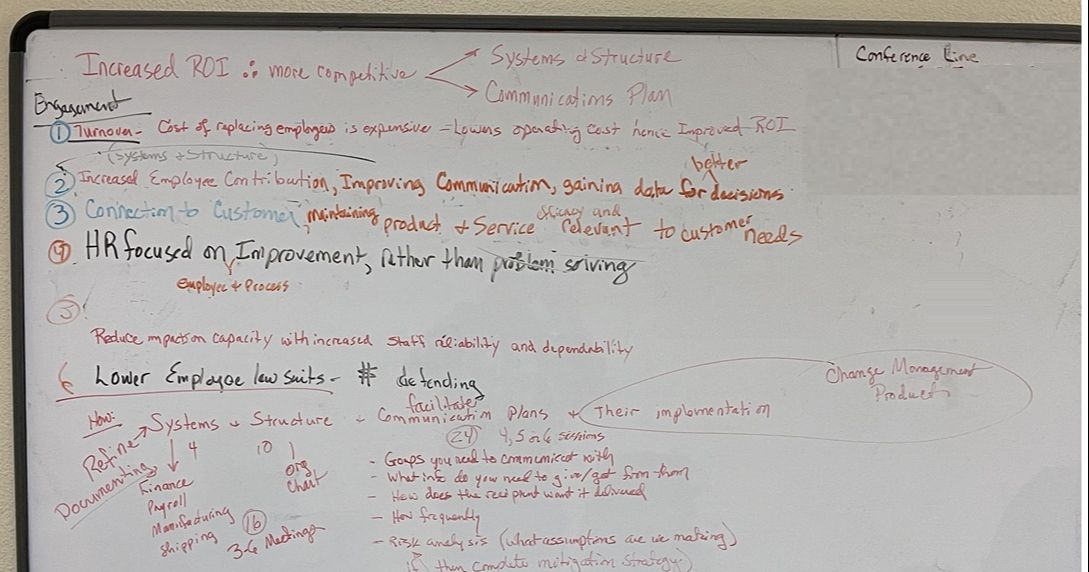 Increased ROI ∴ more competitive
Systems & Structure
Communications Plan
Conference Line
Engagement
① Turnover - Cost of replacing employees is expensive - Lowers operating cost hence Improved ROI
(Systems + Structure)
better
② Increased Employee Contribution, Improving Communication, gaining data for decisions
③ Connection to Customer, maintaining product + Service relevant to customer needs
efficacy and
④ HR focused on Improvement, rather than problem solving
employee + Process
⑤
Reduce impact on capacity with increased staff reliability and dependability
6 Lower Employee law suits - # defending
Change Management
Product
facilitate
How: Systems + Structure - Communication Plans + Their implementation
Refine
Documenting
4
10
24 4, 5 or 6 sessions
Finance
Payroll
Manufacturing
Shipping
org
Chart
16
3-6 Meetings
- Groups you need to communicat with
- What info do you need to give/get from them
- How does the recipient want it delivered
- How frequently
- Risk analysis (what assumptions are we making)
if then complete mitigation strategy)